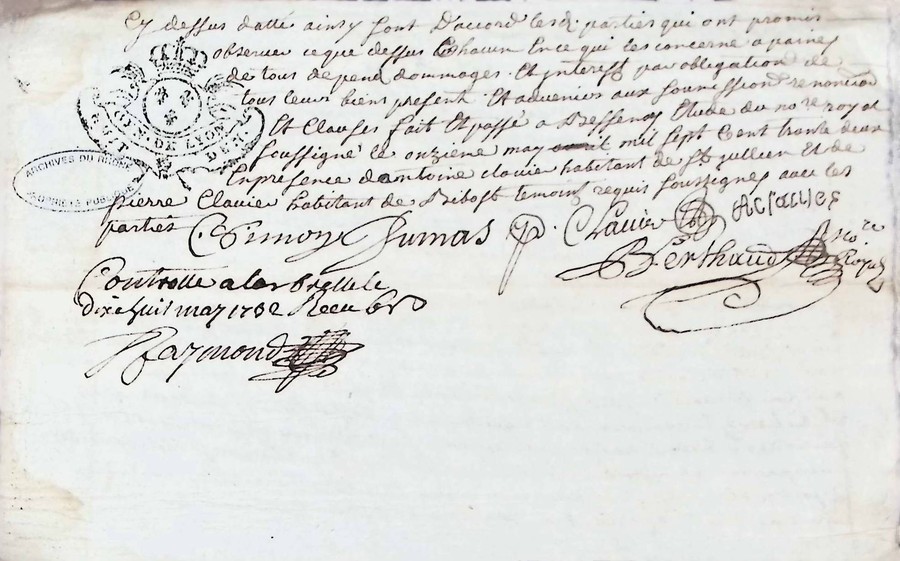 Cy dessus datté ainsy sont D'accord lesd. parties qui ont promis
observer ceque dessus Chacun Ence qui les concerne a paine
de tous depend dommages Et interest par obligation de
tous leurs biens present Et advenirs aux soumissions renonciaõ
Et Clauses fait Et passé a Bessenay Etude du no.re royal
soussigné le onzieme may mil sept Cent trente deux
Enpresence dantoine clavier habitant de St jullien Et de
pierre Clavier habitant de Ribost temoins requis soussignes avec les
parties
C. Simon Dumas p. Clavier AClavier
Berthaud No.re Royal
Controllé a larbrelle le
dix huit may 1732 Receu
Raymond
GEN. DE LYON
ARCHIVES DU RHÔNE
PROPRIÉTÉ PUBLIQUE